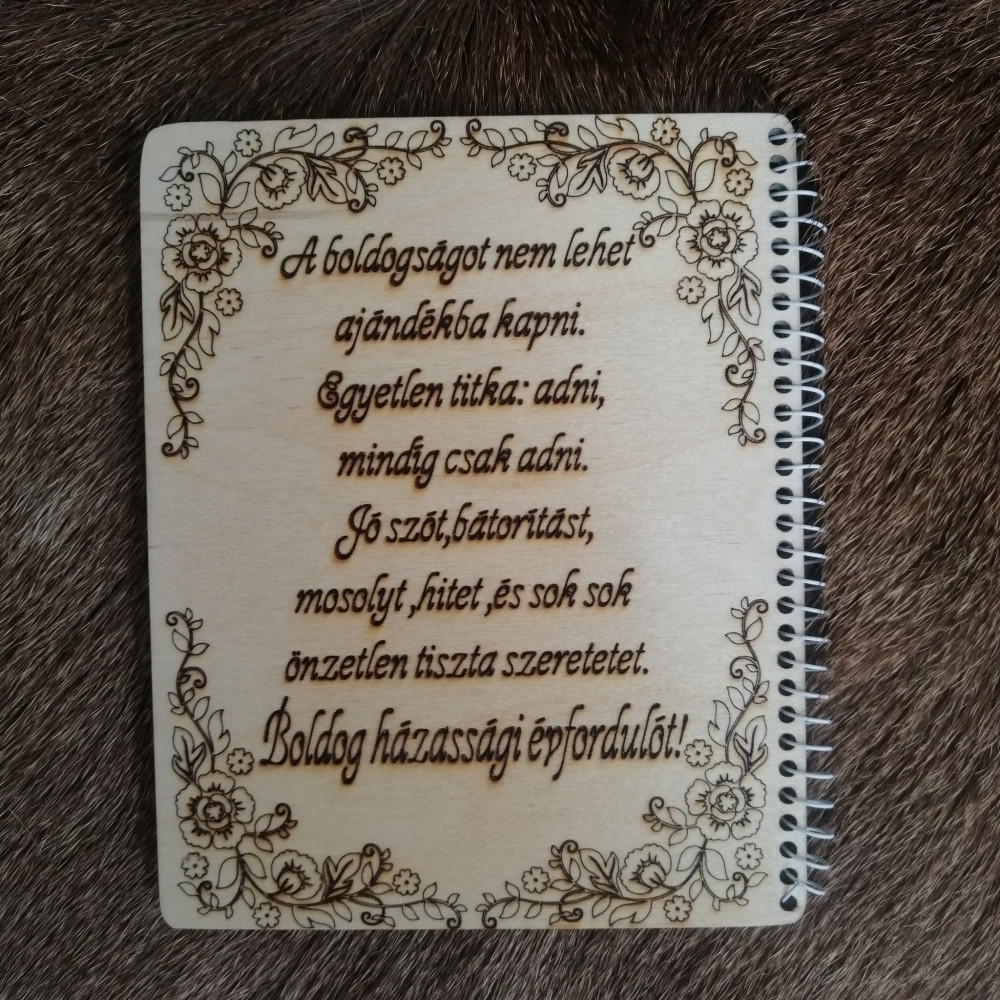 A boldogságot nem lehet
ajándékba kapni.
Egyetlen titka: adni,
mindig csak adni.
Jó szót,bátorítást,
mosolyt ,hitet ,és sok sok
önzetlen tiszta szeretetet.
Boldog házassági évfordulót!